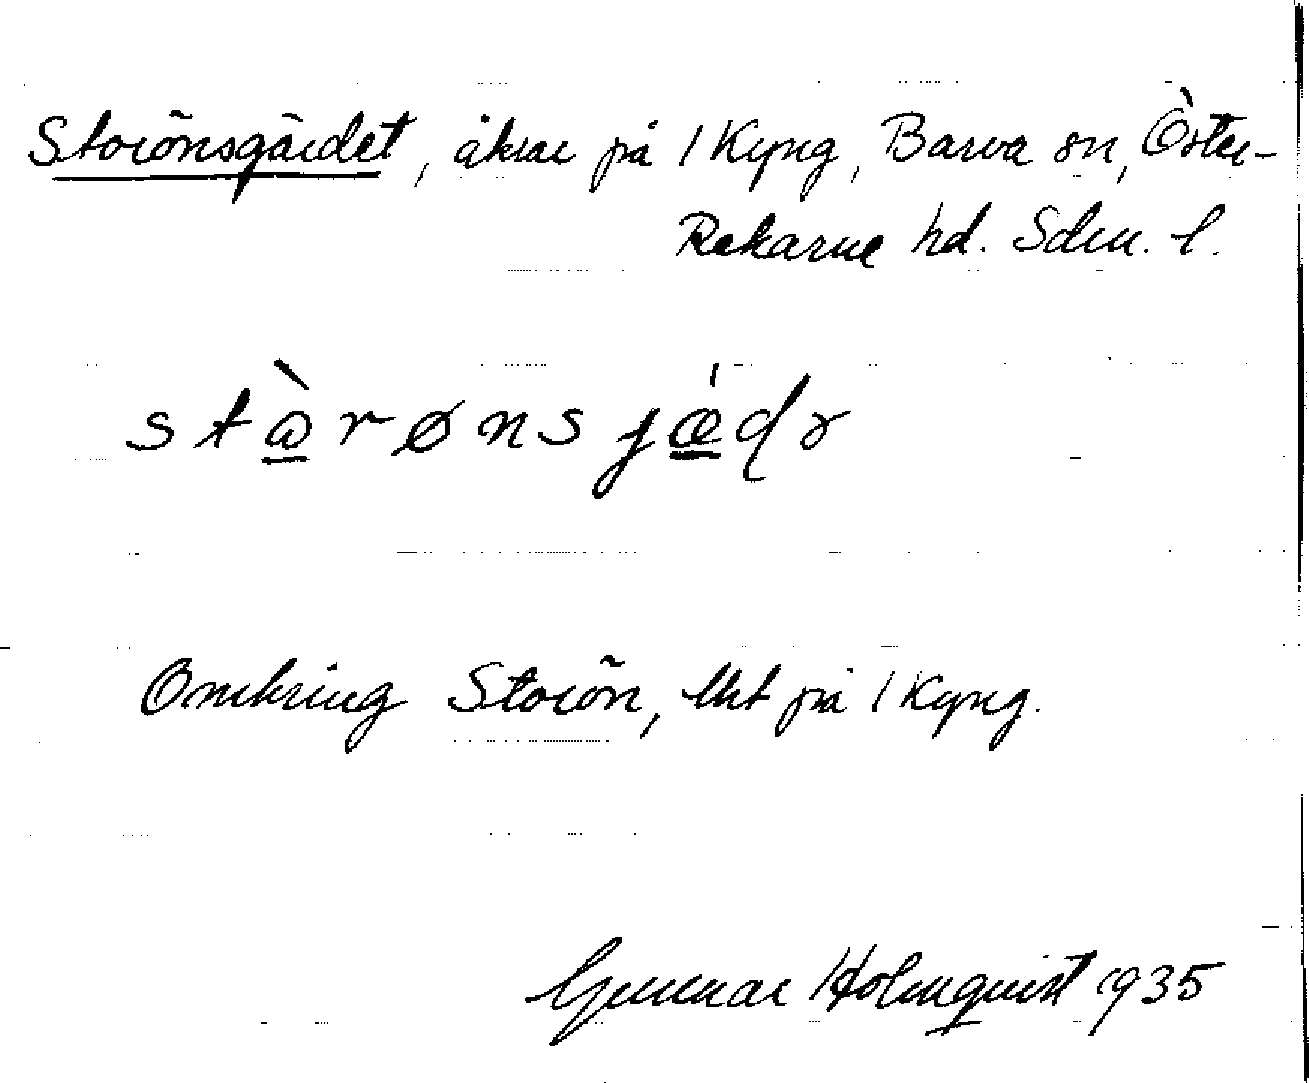 Storönsgärdet, åkrar på 1 Kyng, Barva sn, Öster-
Rekarne hd. Södm. l.
Omkring Storön, lht på 1 Kyng.
Gunnar Holmquist 1935